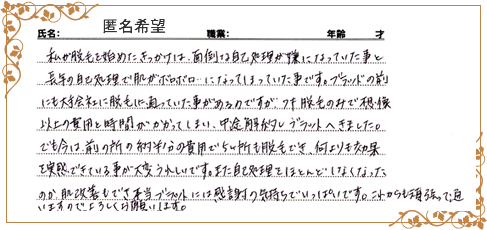 氏名: 匿名希望 職業: 年齢 才
私が脱毛を始めたきっかけは、面倒な自己処理が嫌になっていた事と
長年の自己処理で肌がボロボロ…になってしまっていた事です。プラットの前
にも大手会社に脱毛に通っていた事があるのですが、ワキ脱毛のみで想像
以上の費用と時間がかかってしまい、中途解約しプラットへきました。
でも今は、前の所の約半分の費用で5ヶ所も脱毛でき、何よりも効果
を実感できている事が大変うれしいです。また自己処理をほとんどしなくなった
のか、肌改善もでき本当プラットには感謝の気持ちでいっぱいです。これからも頑張って通
いますのでよろしくお願いします。